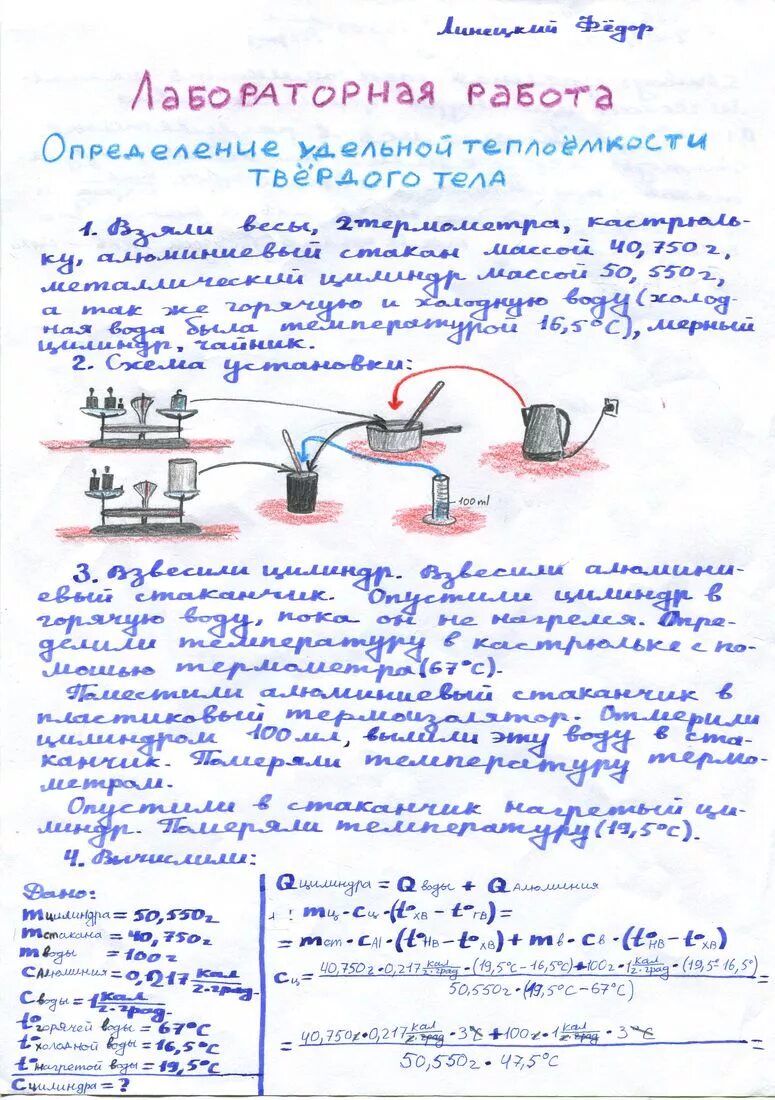 Линецкий Фёдор
Лабораторная работа
Определение удельной теплоёмкости
твёрдого тела
1. Взяли весы, 2 термометра, кастрюль-
ку, алюминиевый стакан массой 40,750 г,
металлический цилиндр массой 50,550 г,
а так же горячую и холодную воду (холод-
ная вода была температурой 16,5°С), мерный
цилиндр, чайник.
2. Схема установки:
100 ml
3. Взвесили цилиндр. Взвесили алюмини-
евый стаканчик. Опустили цилиндр в
горячую воду, пока он не нагрелся. Опре-
делили температуру в кастрюльке с по-
мощью термометра (67°С).
Поместили алюминиевый стаканчик в
пластиковый термоизолятор. Отмерили
цилиндром 100 мл, вылили эту воду в ста-
канчик. Померяли температуру термо-
метром.
Опустили в стаканчик нагретый ци-
линдр. Померяли температуру (19,5°С).
4. Вычислили:
Дано:
mцилиндра = 50,550 г
mстакана = 40,750 г
mводы = 100 г
Cалюминия = 0,217 кал/г·град.
Cводы = 1 кал/г·град.
t°горячей воды = 67°С
t°холодной воды = 16,5°С
t°нагретой воды = 19,5°С
Cцилиндра = ?
Qцилиндра = Qводы + Qалюминия
mц·cц·(t°хв - t°гв) =
= mст·cAl·(t°нв - t°хв) + mв·cв·(t°нв - t°хв)
cц = 40,750г·0,217 кал/г·град·(19,5°С - 16,5°С) + 100г·1 кал/г·град·(19,5°-16,5°) / 50,550г·(19,5°С - 67°С) =
= 40,750г·0,217 кал/г·град·3°С + 100г·1 кал/г·град·3°С / 50,550г·47,5°С =